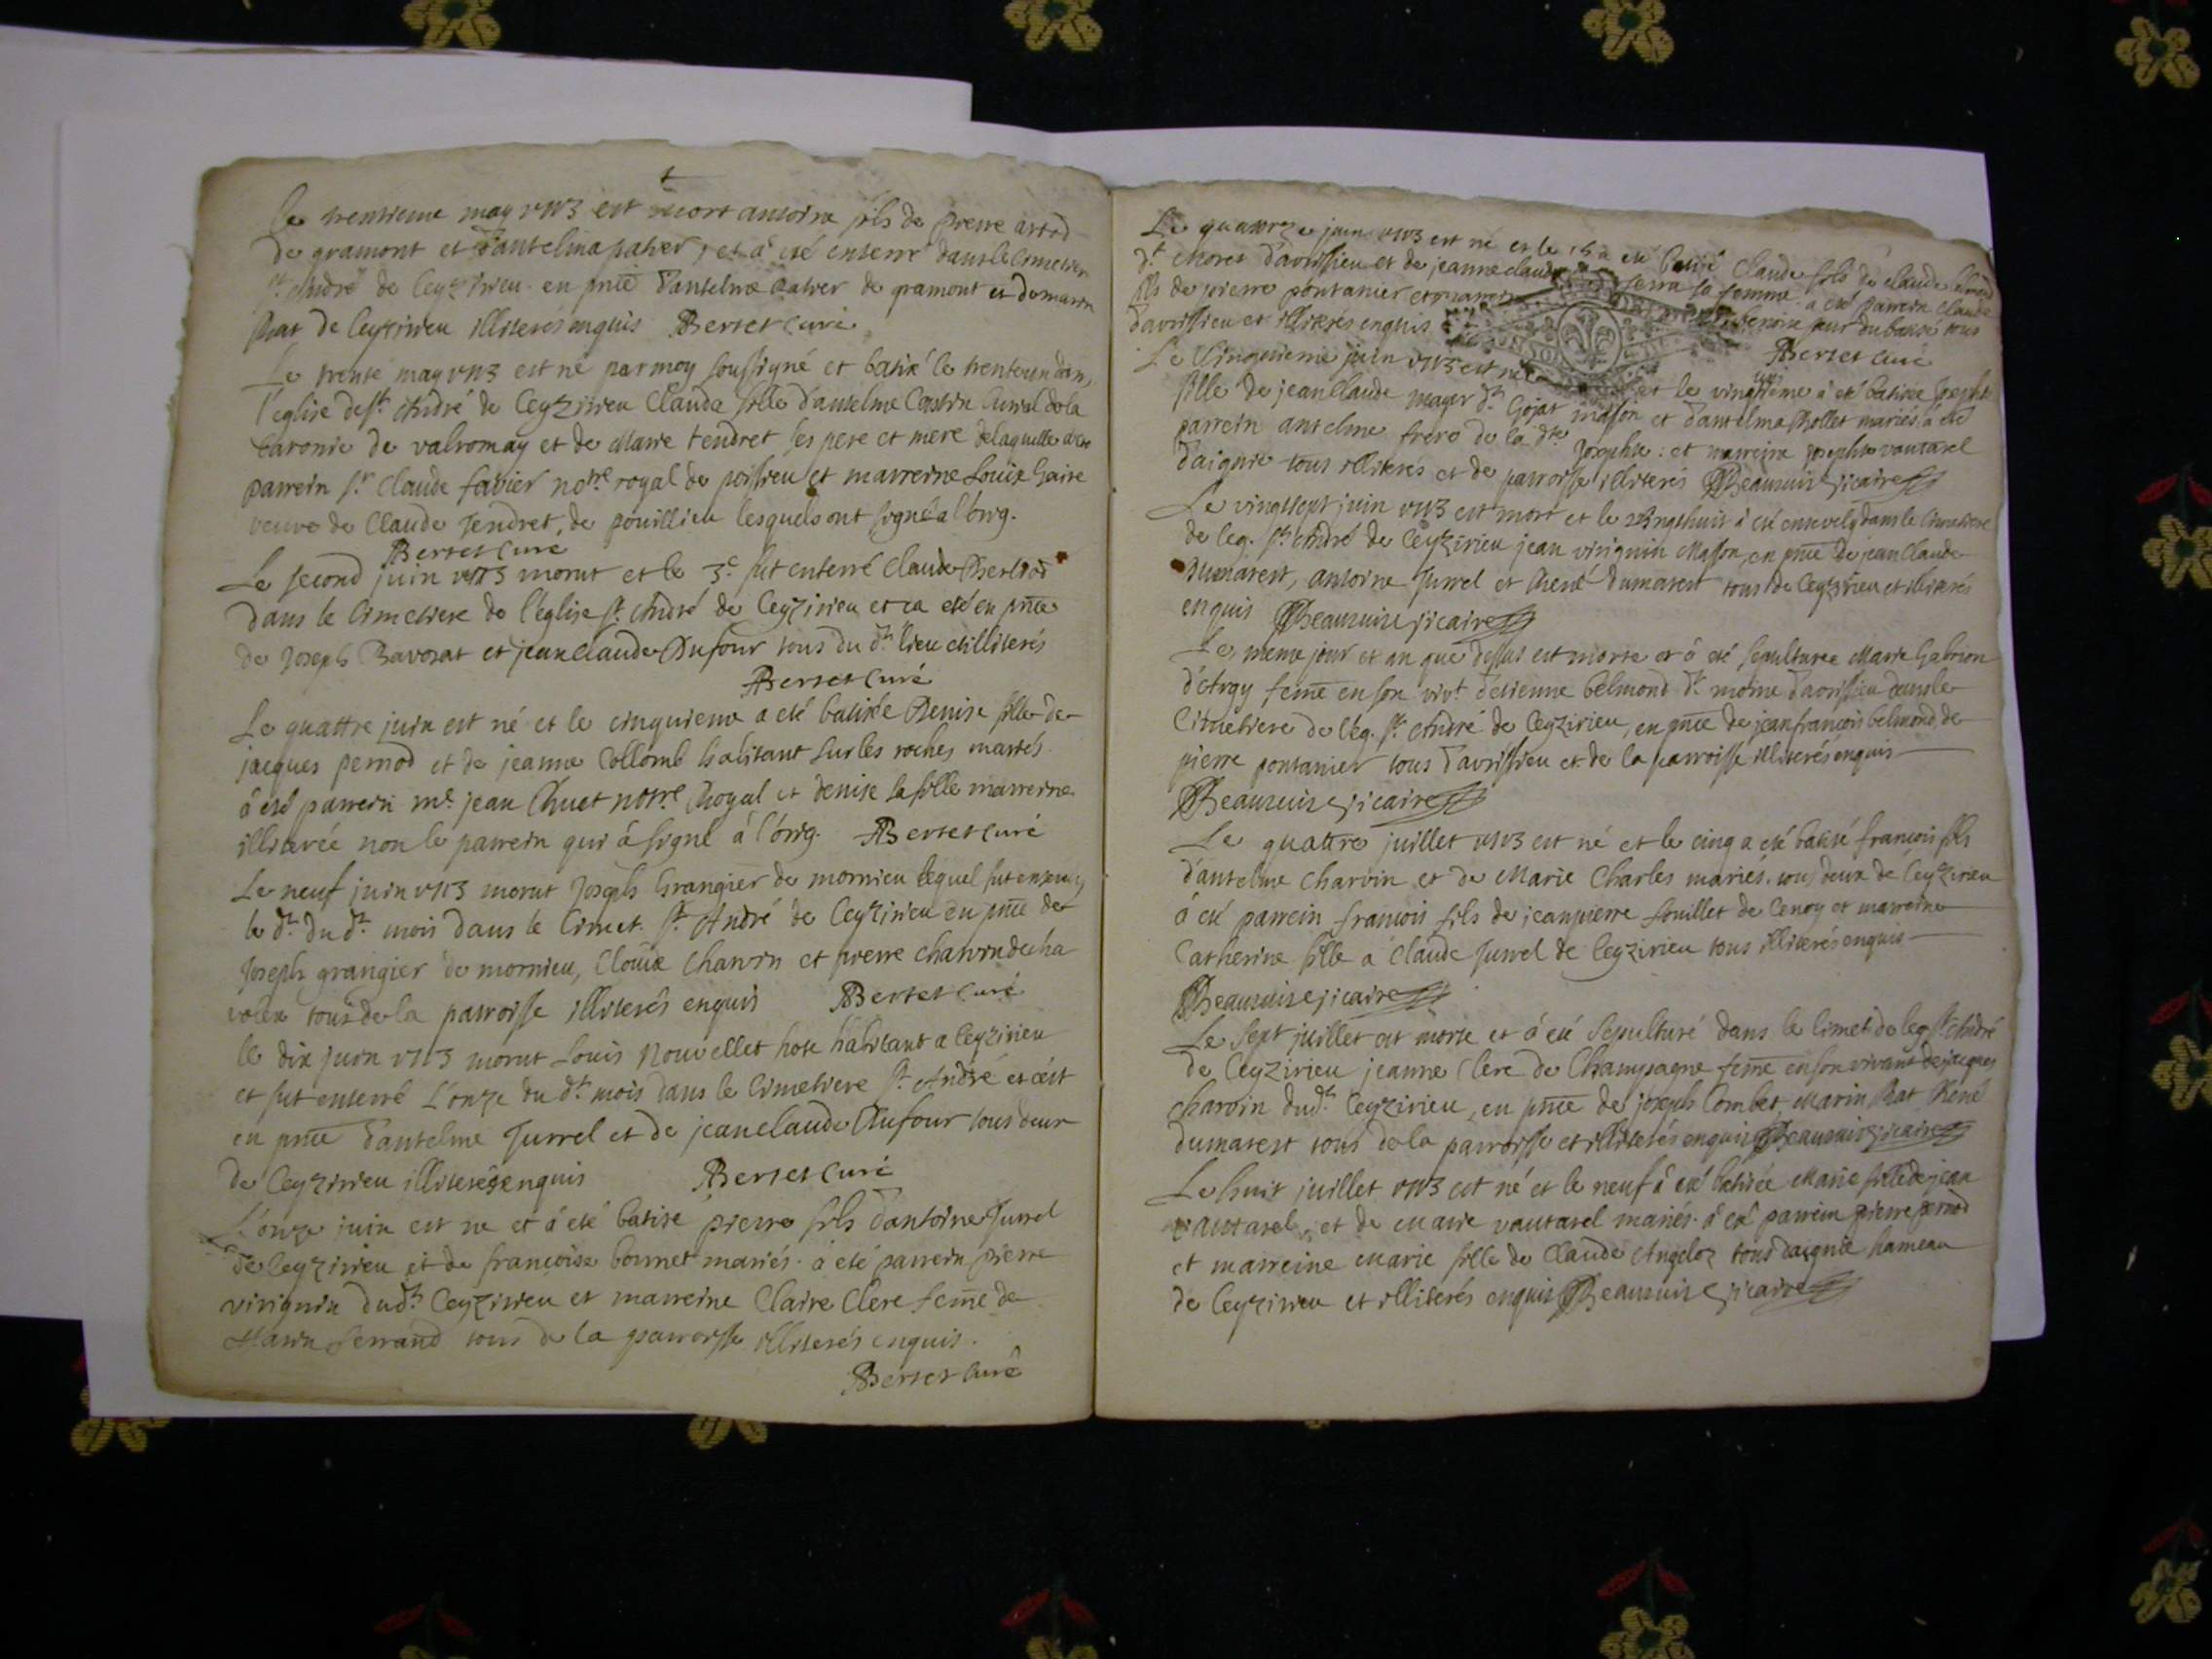 Le trentieme may 1713 est mort antoine fils de pierre artod
de gramont et d'antelma pater, et à eté enterré dans le cimetiere
st. André de Ceyzirieu en pnce d'antelme pater de gramont et de marin
Rat de Ceyzirieu illiterés enquis Bertet Curé
Le trente may 1713 est né par moy soussigné et batisé le trenteun dans
l'eglise de st. André de Ceyzirieu Claude fille d'antelme Castin de la
baronie de valromay et de Marie tendret ses pere et mere de laquelle
parrein sr. Claude favier notre royal de poissieu et marreine Louise
veuve de Claude tendret, de pouillieu lesquels ont signé a l'orig.
Bertet Curé
Le second juin 1713 morut et le 3e. fut enterré Claude Berliod
dans le Cimetiere de l'église st. André de Ceyzirieu et ca eté en pnce
de Joseph Bavosat et jean claude Dufour tous du dt. lieu et illiterés
Bertet Curé
Le quattre juin est né et le cinquieme a eté batisée Denise fille de
jacques pernod et de jeanne Collomb habitant sur les roches mariés
à eté parrein me. jean Chuet notre Royal et denise sa fille marreine
illiterée non le parrein qui à signé à l'orig. Bertet Curé
Le neuf juin 1713 morut Joseph Grangier de mornieu lequel fut
le dt. du dt. mois dans le Cimet. st. André de Ceyzirieu en pnce de
Joseph grangier de mornieu, Charvin et pierre charvin de cha
volex tous de la parroisse illiterés enquis Bertet Curé
le dix juin 1713 morut Louis Nouvellet hote habitant a Ceyzirieu
et fut enterré L'onze du dt. mois dans le Cimetiere st. André et c'est
en pnce d'antelme Jurrel et de jean claude Dufour tous deux
de Ceyzirieu illiterés enquis Bertet Curé
L'onze juin est né et à eté batisé pierre fils d'antoine Jurrel
de Ceyzirieu et de françoise bonnet mariés. a eté parrein pierre
virignin dudt. Ceyzirieu et marreine Claire Clere feme de
Marin ferrand tous de la parroisse illiterés enquis.
Bertet Curé
Le quatorze juin 1713 est né et le 15 a eté batisé Claude fils de claude
dt. Moret d'avrissieu et de jeanne claude serra sa femme. a eté parrein Claude
fils de pierre pontanier et marreine sœur du batisé tous
d'avrissieu et illiterés enquis Bertet Curé
Le Cinquieme juin 1713 est née et le vingtieme à eté batisée Josephte
fille de jean Claude mayer dt. Gojat masson et d'antelma Chollet mariés, à eté
parrein antelme frere de la dte. Josephte: et marreine josephte vautarel
d'aignie tous illiterés et de parroisse illiterés Beauvuis vicaire
Le vingtsept juin 1713 est mort et le vingthuit à eté ensevely dans le Cimetiere
de leg. st. André de Ceyzirieu jean virignin Masson, en pnce de jean Claude
Dumarest, antoine Jurrel et René dumarest tous de Ceyzirieu et illiterés
enquis Beauvuis vicaire
Le meme jour et an que dessus est morte et à eté sepulturee Marie Gabrion
d'Argy feme en son vivt. d'etienne belmond dt. moine d'avrissieu dans le
Cimetiere de l'eg. st. André de Ceyzirieu, en pnce de jean françois belmond, de
pierre pontanier tous d'avrissieu et de la parroisse illiterés enquis
Beauvuis vicaire
Le quattre juillet 1713 est né et le cinq a eté batisé françois fils
d'antelme Charvin et de Marie Charles mariés. tous deux de Ceyzirieu
à eté parrein françois fils de jean pierre fouillet de Cenoy et marreine
Catherine fille a Claude Jurrel de Ceyzirieu tous illiterés enquis
Beauvuis vicaire
Le sept juillet est morte et à eté sepulturé dans le cimet. de leg. st. André
de Ceyzirieu jeanne Clere de Champagne feme en son vivant de jacques
charvin dudt. Ceyzirieu, en pnce de joseph Combet, Marin Rat René
dumarest tous de la parroisse et illiterés enquis Beauvuis vicaire
Le huit juillet 1713 est né et le neuf à eté batisée Marie fille de jean
vautarel, et de Marie vautarel mariés. à eté parrein pierre pernod
et marreine Marie fille de Claude Angeloz tous d'aignie hameau
de Ceyzirieu et illiterés enquis Beauvuis vicaire